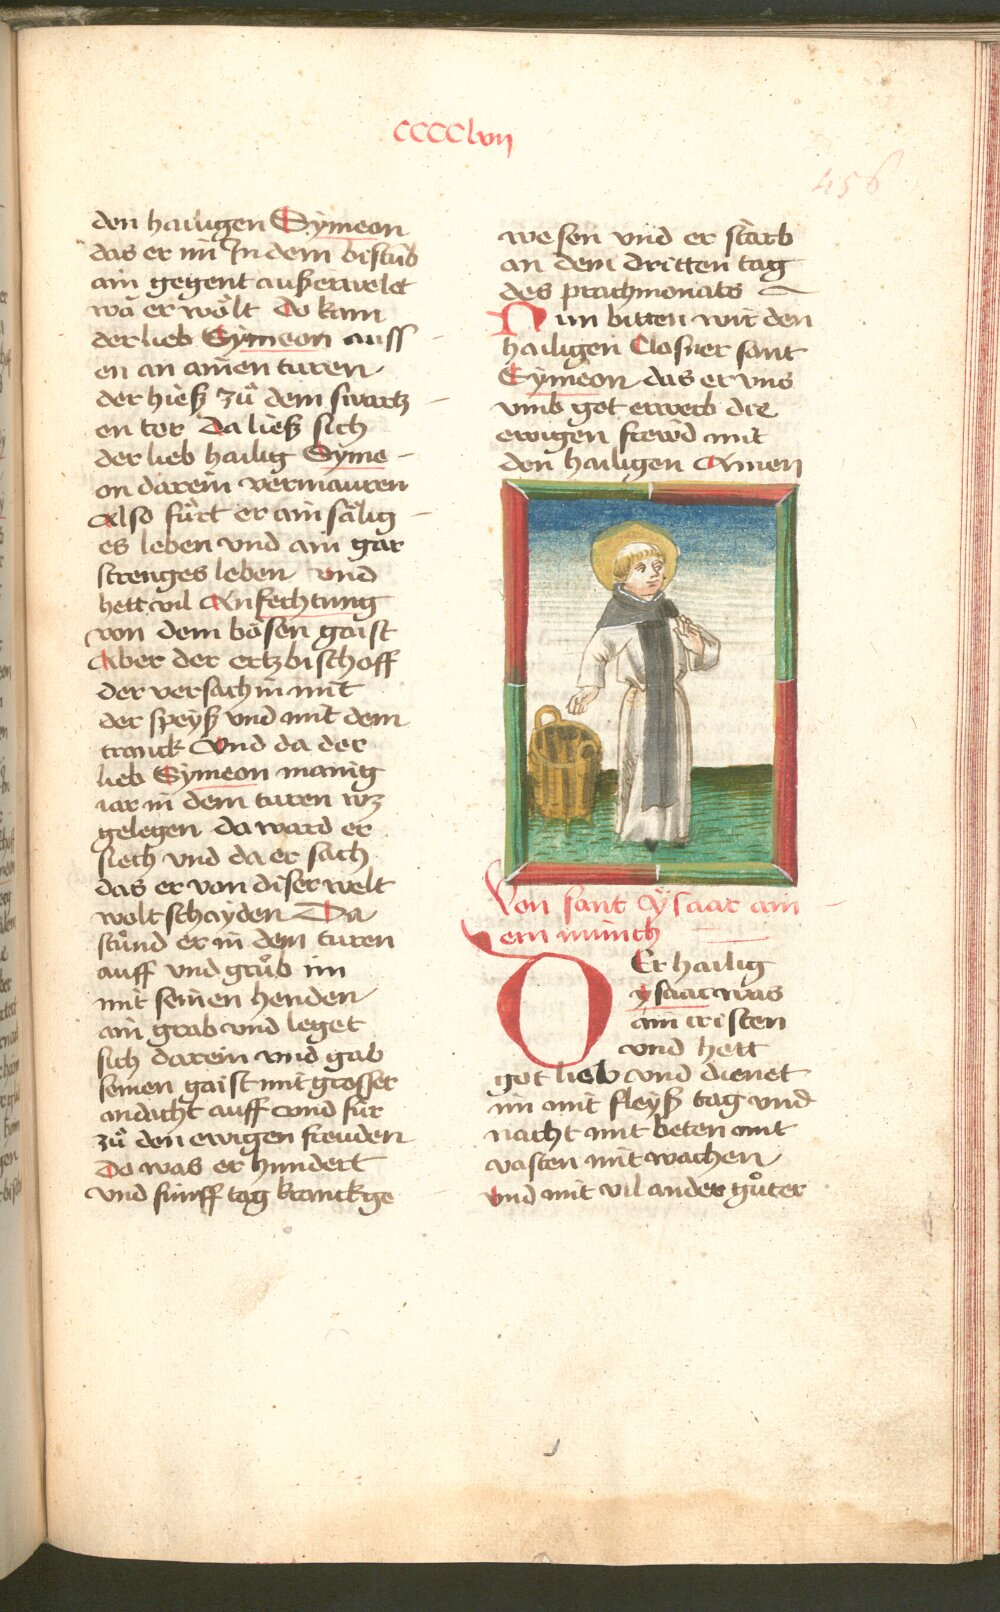 CCCClvij
456
den hailigen Sÿmeon
das er im In dem bistūb
ain gegent außerwelet
wa er wölt Do kam
der lieb Sÿmeon auss
en an ainen turen
der hieß zů dem swartz
en tor Da ließ sich
der lieb hailig Syme
on darein vermauren
Also fůrt er ain sälig
es leben vnd ain gar
strenges leben vnd
hett vil Anfechtung
von dem bösen gaist
Aber der ertzbischoff
der versach in mit
der speÿß vnd mit dem
tranck Vnd da der
lieb Sÿmeon manig
iar in dem turen wz
gelegen da ward er
siech vnd da er sach
das er von diser welt
wolt schayden Da
stůnd er in dem turen
auff vnd grůb im
mit seinen henden
ain grab vnd leget
sich darein vnd gab
seinen gaist mit grosser
andacht auff vnd fůr
zů den ewigen freuden
Do was er hundert
vnd fünff tag kranck ge
wesen vnd er starb
an dem dritten tag
des prachmonats
Nun bitten wir den
hailigen Closner sant
Sÿmeon das er vns
vmb got erwerb die
ewigen frewd mit
den hailigen Amen
Von sant Ÿsaac ain
em münch
DEr hailig
ysaac was
ain cristen
vnd hett
got lieb vnd dienet
im mit fleÿß tag vnd
nacht mit beten mit
vasten mit wachen
vnd mit vil ander gůter